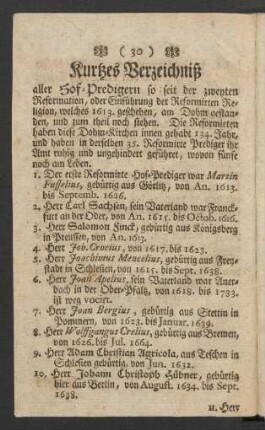 ( 30 )
Kurtzes Verzeichniß
aller Hof-Predigern so seit der zweyten
Reformation, oder Einführung der Reformirten Re-
ligion, welches 1613. geschehen, am Dohm gestan-
den, und zum theil noch stehen. Die Reformirten
haben diese Dohm-Kirchen innen gehabt 134. Jahr,
und haben in derselben 35. Reformirte Prediger ihr
Amt ruhig und ungehindert geführet, wovon fünfe
noch am Leben.
1. Der erste Reformirte Hof-Prediger war Martin
Fusselius, gebürtig aus Görlitz, von An. 1613.
bis Septemb. 1626.
2. Herr Carl Sachsen, sein Vaterland war Franck-
furt an der Oder, von An. 1615. bis Octob. 1616.
3. Herr Salomon Finck, gebürtig aus Königsberg
in Preussen, von An. 1613.
4. Herr Joh. Crocius, von 1617. bis 1623.
5. Herr Joachimus Mencelius, gebürtig aus Frey-
stadt in Schlesien, von 1615. bis Sept. 1638.
6. Herr Joan Apelius, sein Vaterland war Auer-
bach in der Ober-Pfaltz, von 1618. bis 1733.
ist weg vocirt.
7. Herr Joan Bergius, gebürtig aus Stettin in
Pommern, von 1623. bis Januar. 1639.
8. Herr Wolffgangus Crelius, gebürtig aus Bremen,
von 1626. bis Jul. 1664.
9. Herr Adam Christian Agricola, aus Teschen in
Schlesien gebürtig, von Jun. 1632.
10. Herr Johann Christoph Hübner, gebürtig
hier aus Berlin, von August. 1634. bis Sept.
1638.
11. Herr